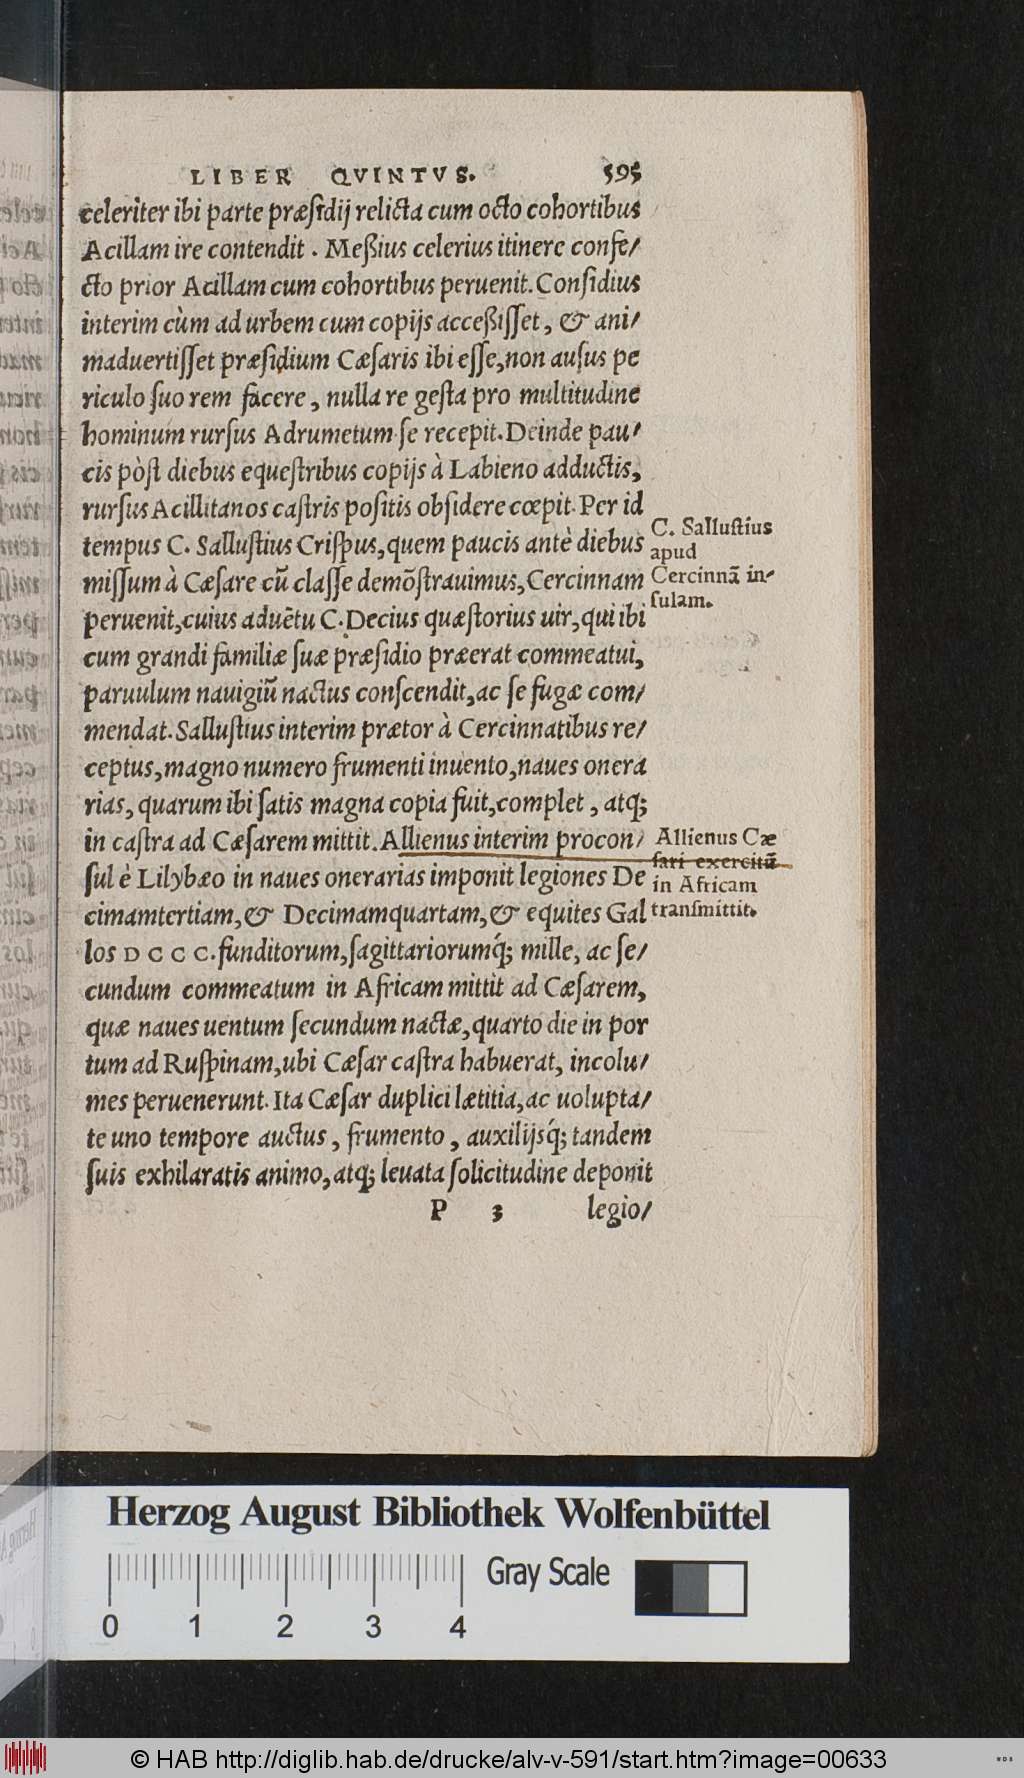 LIBER QVINTVS. 595
celeriter ibi parte præſidij relicta cum octo cohortibus
Acillam ire contendit. Meßius celerius itinere confe/
cto prior Acillam cum cohortibus peruenit. Conſidius
interim cùm ad urbem cum copijs acceßiſſet, & ani/
maduertiſſet præſidium Cæſaris ibi eſſe, non auſus pe
riculo ſuo rem facere, nulla re geſta pro multitudine
hominum rurſus Adrumetum ſe recepit. Deinde pau/
cis pòſt diebus equeſtribus copijs à Labieno adductis,
rurſus Acillitanos caſtris poſitis obſidere cœpit. Per id
tempus C. Salluſtius Criſpus, quem paucis antè diebus
miſſum à Cæſare cū claſſe demōſtrauimus, Cercinnam
peruenit, cuius aduētu C. Decius quæſtorius uir, qui ibi
cum grandi familiæ ſuæ præſidio præerat commeatui,
paruulum nauigiū nactus conſcendit, ac ſe fugæ com/
mendat. Salluſtius interim prætor à Cercinnatibus re/
ceptus, magno numero frumenti inuento, naues onera
rias, quarum ibi ſatis magna copia fuit, complet, atq;
in caſtra ad Cæſarem mittit. Allienus interim procon/
ſul è Lilybæo in naues onerarias imponit legiones De
cimamtertiam, & Decimamquartam, & equites Gal
los DCCC. funditorum, ſagittariorumq́; mille, ac ſe/
cundum commeatum in Africam mittit ad Cæſarem,
quæ naues uentum ſecundum nactæ, quarto die in por
tum ad Ruſpinam, ubi Cæſar caſtra habuerat, incolu/
mes peruenerunt. Ita Cæſar duplici lætitia, ac uolupta/
te uno tempore auctus, frumento, auxilijsq́; tandem
ſuis exhilaratis animo, atq; leuata ſolicitudine deponit
P 3 legio/
C. Salluſtius
apud
Cercinnā in-
ſulam.
Allienus Cæ
ſari exercitū
in Africam
tranſmittit.
Herzog August Bibliothek Wolfenbüttel
Gray Scale
0 1 2 3 4
© HAB http://diglib.hab.de/drucke/alv-v-591/start.htm?image=00633